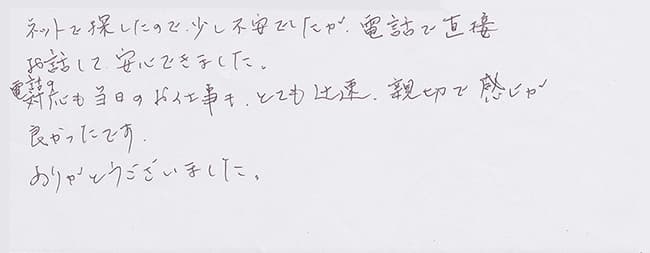 ネットで探したので、少し不安でしたが、電話で直接
お話して、安心できました。
電話の対応も当日のお仕事も、とても迅速、親切で感じが
良かったです。
ありがとうございました。